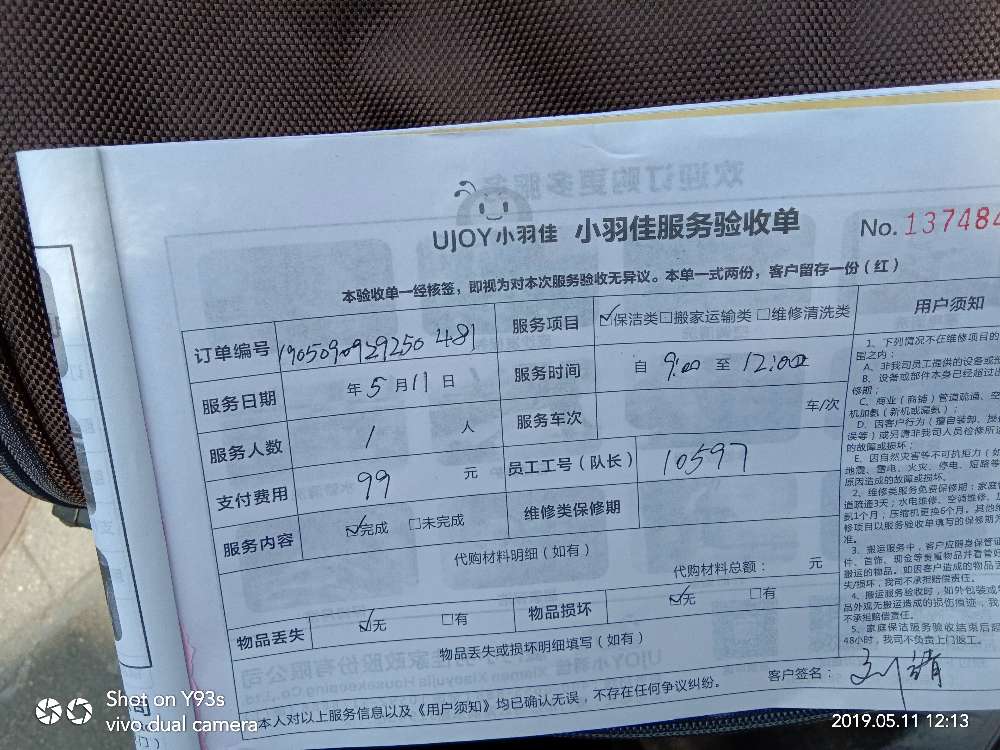 UJOY小羽佳 小羽佳服务验收单
No. 137484
本验收单一经核签，即视为对本次服务验收无异议。本单一式两份，客户留存一份（红）
订单编号 190509092925048 1
服务项目 ☑保洁类□搬家运输类 □维修清洗类
服务日期 年 5 月 11 日
服务时间 自 9:00 至 12:00
服务人数 1 人
服务车次 车/次
支付费用 99 元
员工工号（队长） 10597
服务内容 ☑完成 □未完成
维修类保修期
代购材料明细（如有）
代购材料总额： 元
物品丢失 ☑无 □有
物品损坏 ☑无 □有
物品丢失或损坏明细填写（如有）
本人对以上服务信息以及《用户须知》均已确认无误，不存在任何争议纠纷。
客户签名：
用户须知
1、下列情况不在维修项目的
围之内：
A、非我司员工提供的设备或
B、设备或部件本身已经超过
修期；
C、商业（商铺）管道疏通、空
机加氨（新机或漏氨）；
D、因客户行为（擅自装卸、
误等）或只请非我司人员检修所
的故障或损坏；
E、因自然灾害等不可抗拒力（如
地震、雷电、火灾、停电、短路等
原因造成的故障或损坏。
2、维修类服务免费保修期：家庭
道疏通3天；水电维修、空调维修、
氨1个月；压缩机更换6个月。其他
修项目以服务验收单填写的保修期
准。
3、搬运服务中，客户应随身保管
件、首饰、现金等贵重物品并看管
搬运的物品。如因客户造成的物品丢
失/损坏，我司不承担赔偿责任。
4、搬运服务验收时，如外包装或
品外观无搬运造成的损伤痕迹，我
不承担赔偿责任。
5、家庭保洁服务验收结束后
48小时，我司不负责上门返工。
Shot on Y93s
vivo dual camera
2019.05.11 12:13